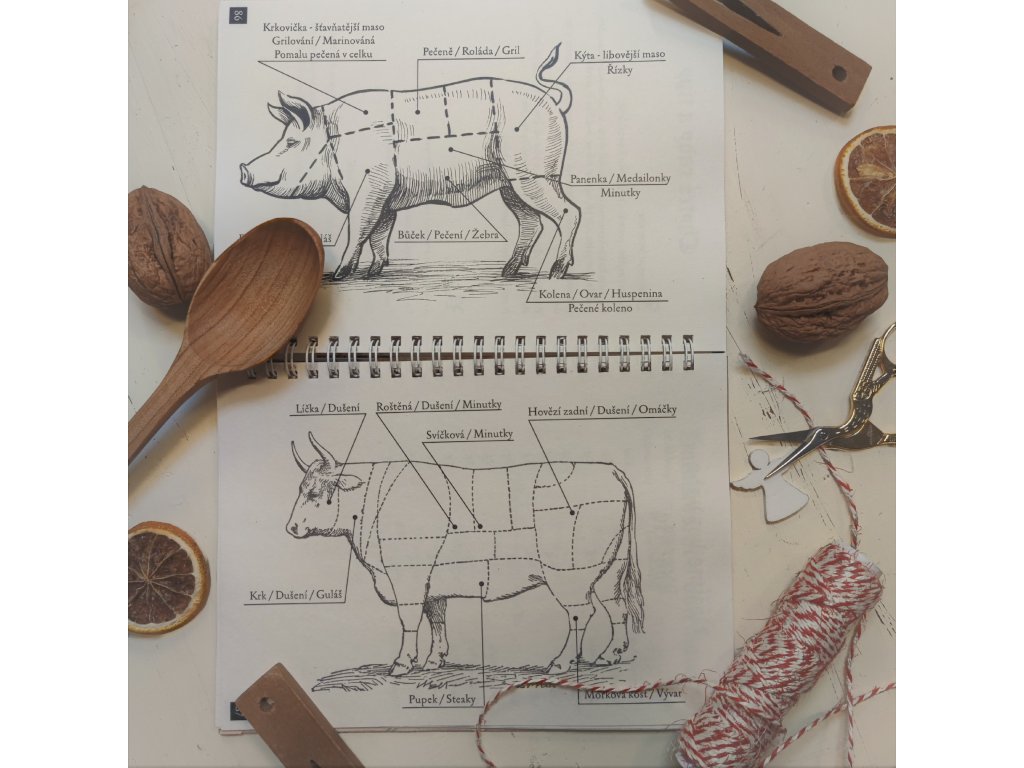 86
Krkovička - šťavňatější maso
Grilování / Marinováná
Pomalu pečená v celku
Pečeně / Roláda / Gril
Kýta - libovější maso
Řízky
Panenka / Medailonky
Minutky
Bůček / Pečení / Žebra
Kolena / Ovar / Huspenina
Pečené koleno
Líčka / Dušení
Roštěná / Dušení / Minutky
Hovězí zadní / Dušení / Omáčky
Svíčková / Minutky
Krk / Dušení / Guláš
Pupek / Steaky
Morková kost / Vývar